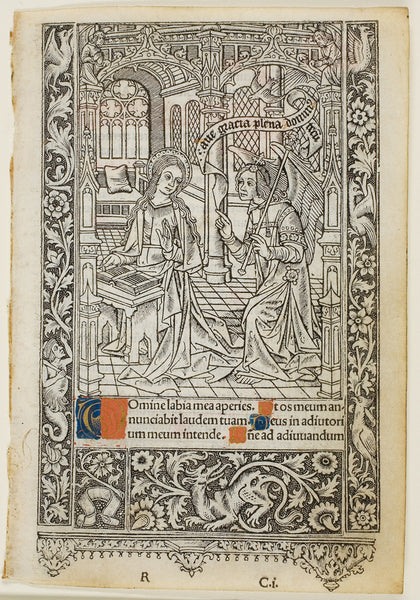 Aue gracia plena domin
Domine labia mea aperies. Et os meum an
nunciabit laudem tuam. Deus in adiutori
um meum intende. Dne ad adiuuandum
R C.i.